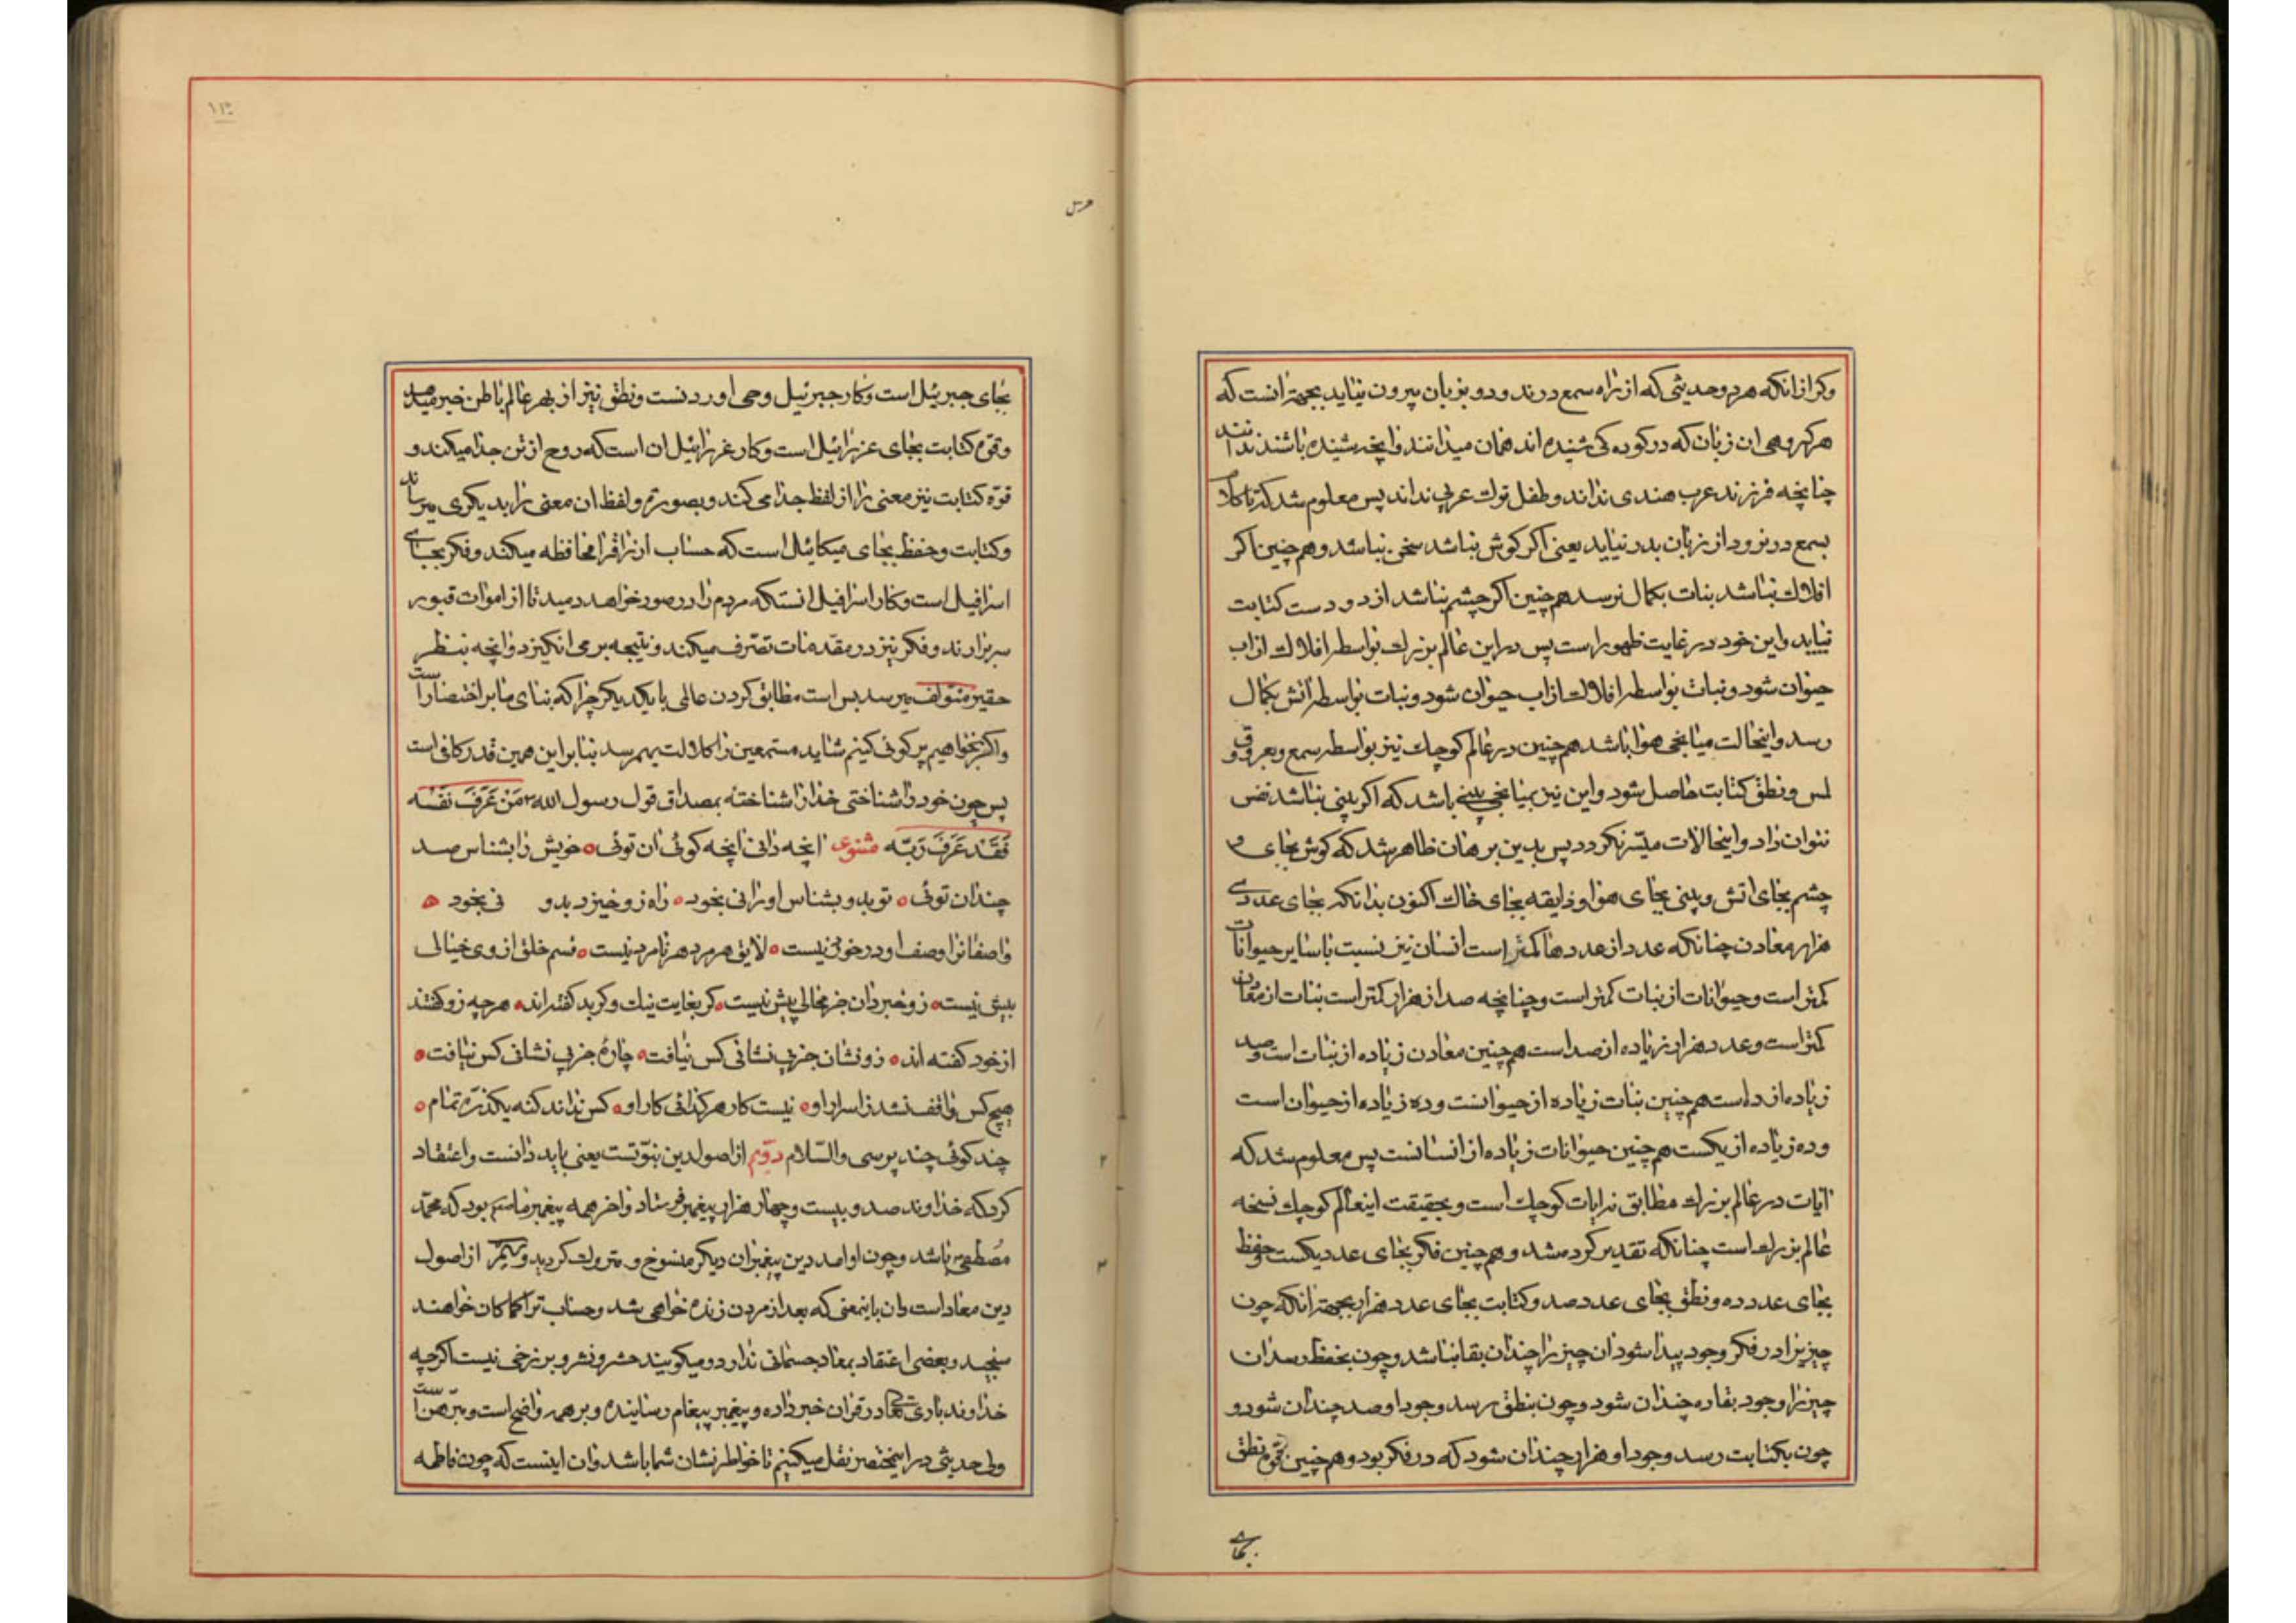 وکر از انکه هر دو حدیثی که از راه سمع در نرود و بزبان بیرون نیاید بجهة انست که
هر کروهی ان زبان که در کودکی شنیده اند همان میدانند و انچه نشنیده باشند ندانند
چنانچه فرزند عرب هندی نداند و طفل ترك عربی نداند پس معلوم شد که تا کلام
بسمع در نرود از زبان بدر نیاید یعنی اکر کوش نباشد سخن نباشد و هم چنین اکر
افلاك نباشد بنات بکمال نرسد هم چنین اکر چشم نباشد از دو دست کتابت
نیاید و این خود در غایت ظهور است پس در این عالم بزرك بواسطه افلاك از اب
حیوان شود و نبات بواسطه افلاك از اب حیوان شود و نبات بواسطه اتش بکمال
رسد و اینحالت میانجی هوا باشد هم چنین در عالم کوچك نیز بواسطه سمع و بصر و ذوق و
لمس و نطق کتابت حاصل شود و این نیز بمیانجی بینی باشد که اکر بینی نباشد نفس
نتوان زاد و اینحالات میسّر نکردد پس بدین برهان ظاهر شد که کوش بجای و
چشم بجای اتش و بینی بجای هوا و ذایقه بجای خاك اکنون بدانکه بجای عددی
هزار معادن چنانکه عدد از عددها کمتر است انسان نیز نسبت با سایر حیوانات
کمتر است و حیوانات از نبات کمتر است و چنانچه صد از هزار کمتر است بنات از معادن
کمتر است و عدد هزار زیاده از صد است هم چنین معادن زیاده از بنات است و صد
زیاده از ده است هم چنین بنات زیاده از حیوانست و ده زیاده از حیوان است
و ده زیاده از یکست هم چنین حیوانات زیاده از انسانست پس معلوم شد که
ایات در عالم بزرك مطابق برایات کوچك است و بحقیقت اینعالم کوچك نسخه
عالم بزرك است چنانکه تقدیر کرده شد و هم چنین فکر بجای عدد یکست و حفظ
بجای عدد ده و نطق بجای عدد صد و کتابت بجای عدد هزار بجهة انکه چون
چیزیرا در فکر وجود پیدا شود ان چیز را چندان بقا نباشد و چون بحفظ رسد ان
چیز را وجود بقا ده چندان شود و چون بنطق رسد وجود او صد چندان شود و
چون بکتابت رسد وجود او هزار چندان شود که در فکر بود و هم چنین قوه نطق
بجای
بجای جبرئیل است و کار جبرئیل وحی اوردنست و نطق نیز از بهر عالم باطن خبر میدهد
و قوّه کتابت بجای عزرائیل است و کار عزرائیل ان است که روح از تن جدا میکند و
قوّه کتابت نیز معنی را از لفظ جدا می کند و بصورة و لفظ ان معنی را بدیکری میرساند
و کتابت و حفظ بجای میکائیل است که حساب ارزاق را محافظه میکند و فکر بجای
اسرافیل است و کار اسرافیل انستکه مردم را در صور خواهد دمید تا از اموات قبور
سر برارند و فکر نیز در مقدمات تصّرف میکند و نتیجه بر می انکیزد و انچه بنظر
حقیر متولف میرسد بس است مطابق کردن عالمی با یکدیکر چرا که بنای ما بر اختصار است
و اکر بخواهیم پر کوئی کنیم شاید مستمعین را کلالت بهمرسد بنابر این همین قدر کافی است
پس چون خود را شناختی خدا را شناخته بمصداق قول رسول الله مَنْ عَرَفَ نَفْسَه
فَقَد عَرَفَ رَبَّه مثنوی انچه دانی انچه کوئی ان توئی خویش را بشناس صد
چندان توئی تو بدو بشناس او را نی بخود راه زو خیزد بدو نی بخود
واصفانرا وصف او در خور نیست لایق هر مرد هر نامرد نیست قسم خلق از وی خیالی
بیش نیست زو خبر دان جز محالی بیش نیست کر بغایت نیك و کر بد کفته اند هر چه زو کفتند
از خود کفته اند زو نشان جز بی نشانی کس نیافت چارهٔ جز بی نشانی کس نیافت
هیچ کس واقف نشد ز اسرار او نیست کار هر کدائی کار او کس نداند کنه یکذرّه تمام
چند کوئی چند پرسی والسّلام دوّیم از اصولدین نبوّتست یعنی باید دانست و اعتقاد
کرد که خداوند صد و بیست و چهار هزار پیغمبر فرستاد و اخر همه پیغمبر ما بود که محمّد
مُصطفی باشد و چون او امد دین پیغمبران دیکر منسوخ و متروك کردید و سیّم از اصول
دین معاد است و ان باینمعنی که بعد از مردن زنده خواهی شد و حساب ترا کما کان خواهند
سنجید و بعضی اعتقاد بمعاد جسمانی ندارد و میکویند حشر و نشر و برزخی نیست اکر چه
خداوند باری تعالی در قران خبر داده و پیغمبر پیغام رسانیده و بر همه واضح است و مبرّهن است
ولی حدیثی در اینمختصر نقل میکنیم تا خواطر نشان شما باشد و ان اینست که چون فاطمه